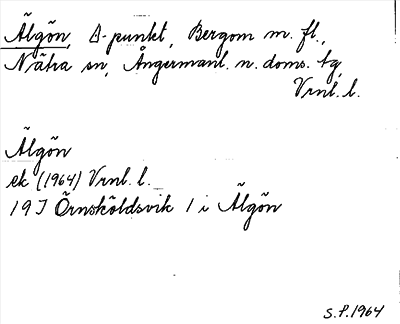 Älgön, Δ-punkt, Bergom m. fl.,
Nätra sn, Ångermanl. n. doms. tg,
Vrnl. l.
Älgön
ek (1964) Vrnl. l.
19 J Örnsköldsvik 1 i Älgön
S.P. 1964